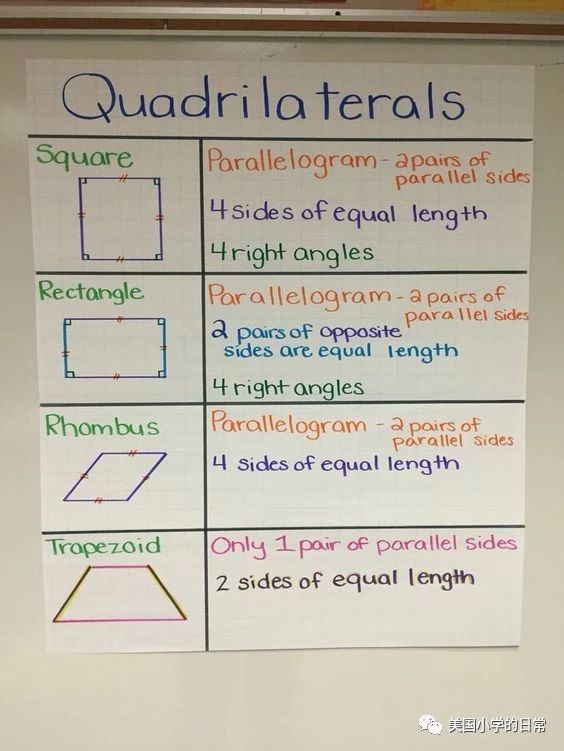 Quadrilaterals
Square
Parallelogram - 2 pairs of
parallel sides
4 sides of equal length
4 right angles
Rectangle
Parallelogram - 2 pairs of
parallel sides
2 pairs of opposite
sides are equal length
4 right angles
Rhombus
Parallelogram - 2 pairs of
parallel sides
4 sides of equal length
Trapezoid
Only 1 pair of parallel sides
2 sides of equal length
美国小学的日常